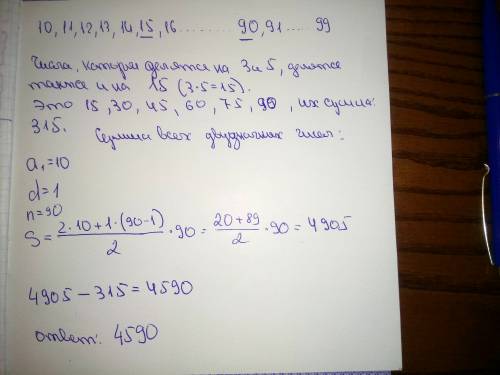 10, 11, 12, 13, 14, 15, 16 ......... 90, 91 ..... 99
Числа, которые делятся на 3 и 5, делятся
также и на 15 (3·5=15).
Это 15, 30, 45, 60, 75, 90, их сумма:
315. Сумма всех двузначных чисел:
a₁=10
d=1
n=90
S= (2·10+1·(90-1))/2 ·90 = (20+89)/2 ·90 = 4905
4905 - 315 = 4590
ответ: 4590